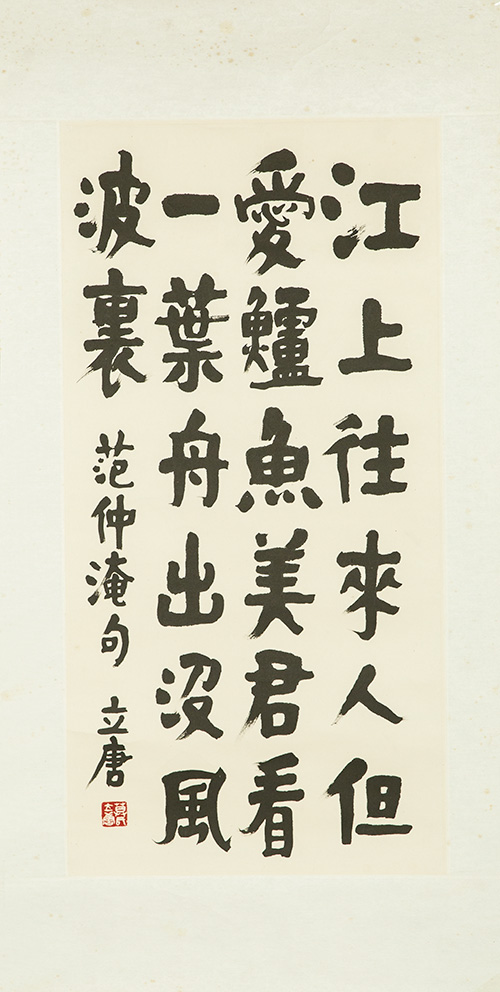 江上往來人但
愛鱸魚美君看
一葉舟出沒風
波裏
范仲淹句 立唐